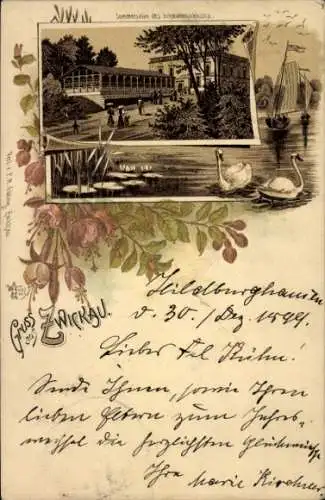 Gruss aus
ZWICKAU.
Hildburghausen
d. 30./Dez. 1899.
Liebes Frl Kühn!
Sende Ihnen, sowie Ihren
lieben Eltern zum Jahres-
wechsel die herzlichsten Glückwünsche
Ihre Marie Kirchner